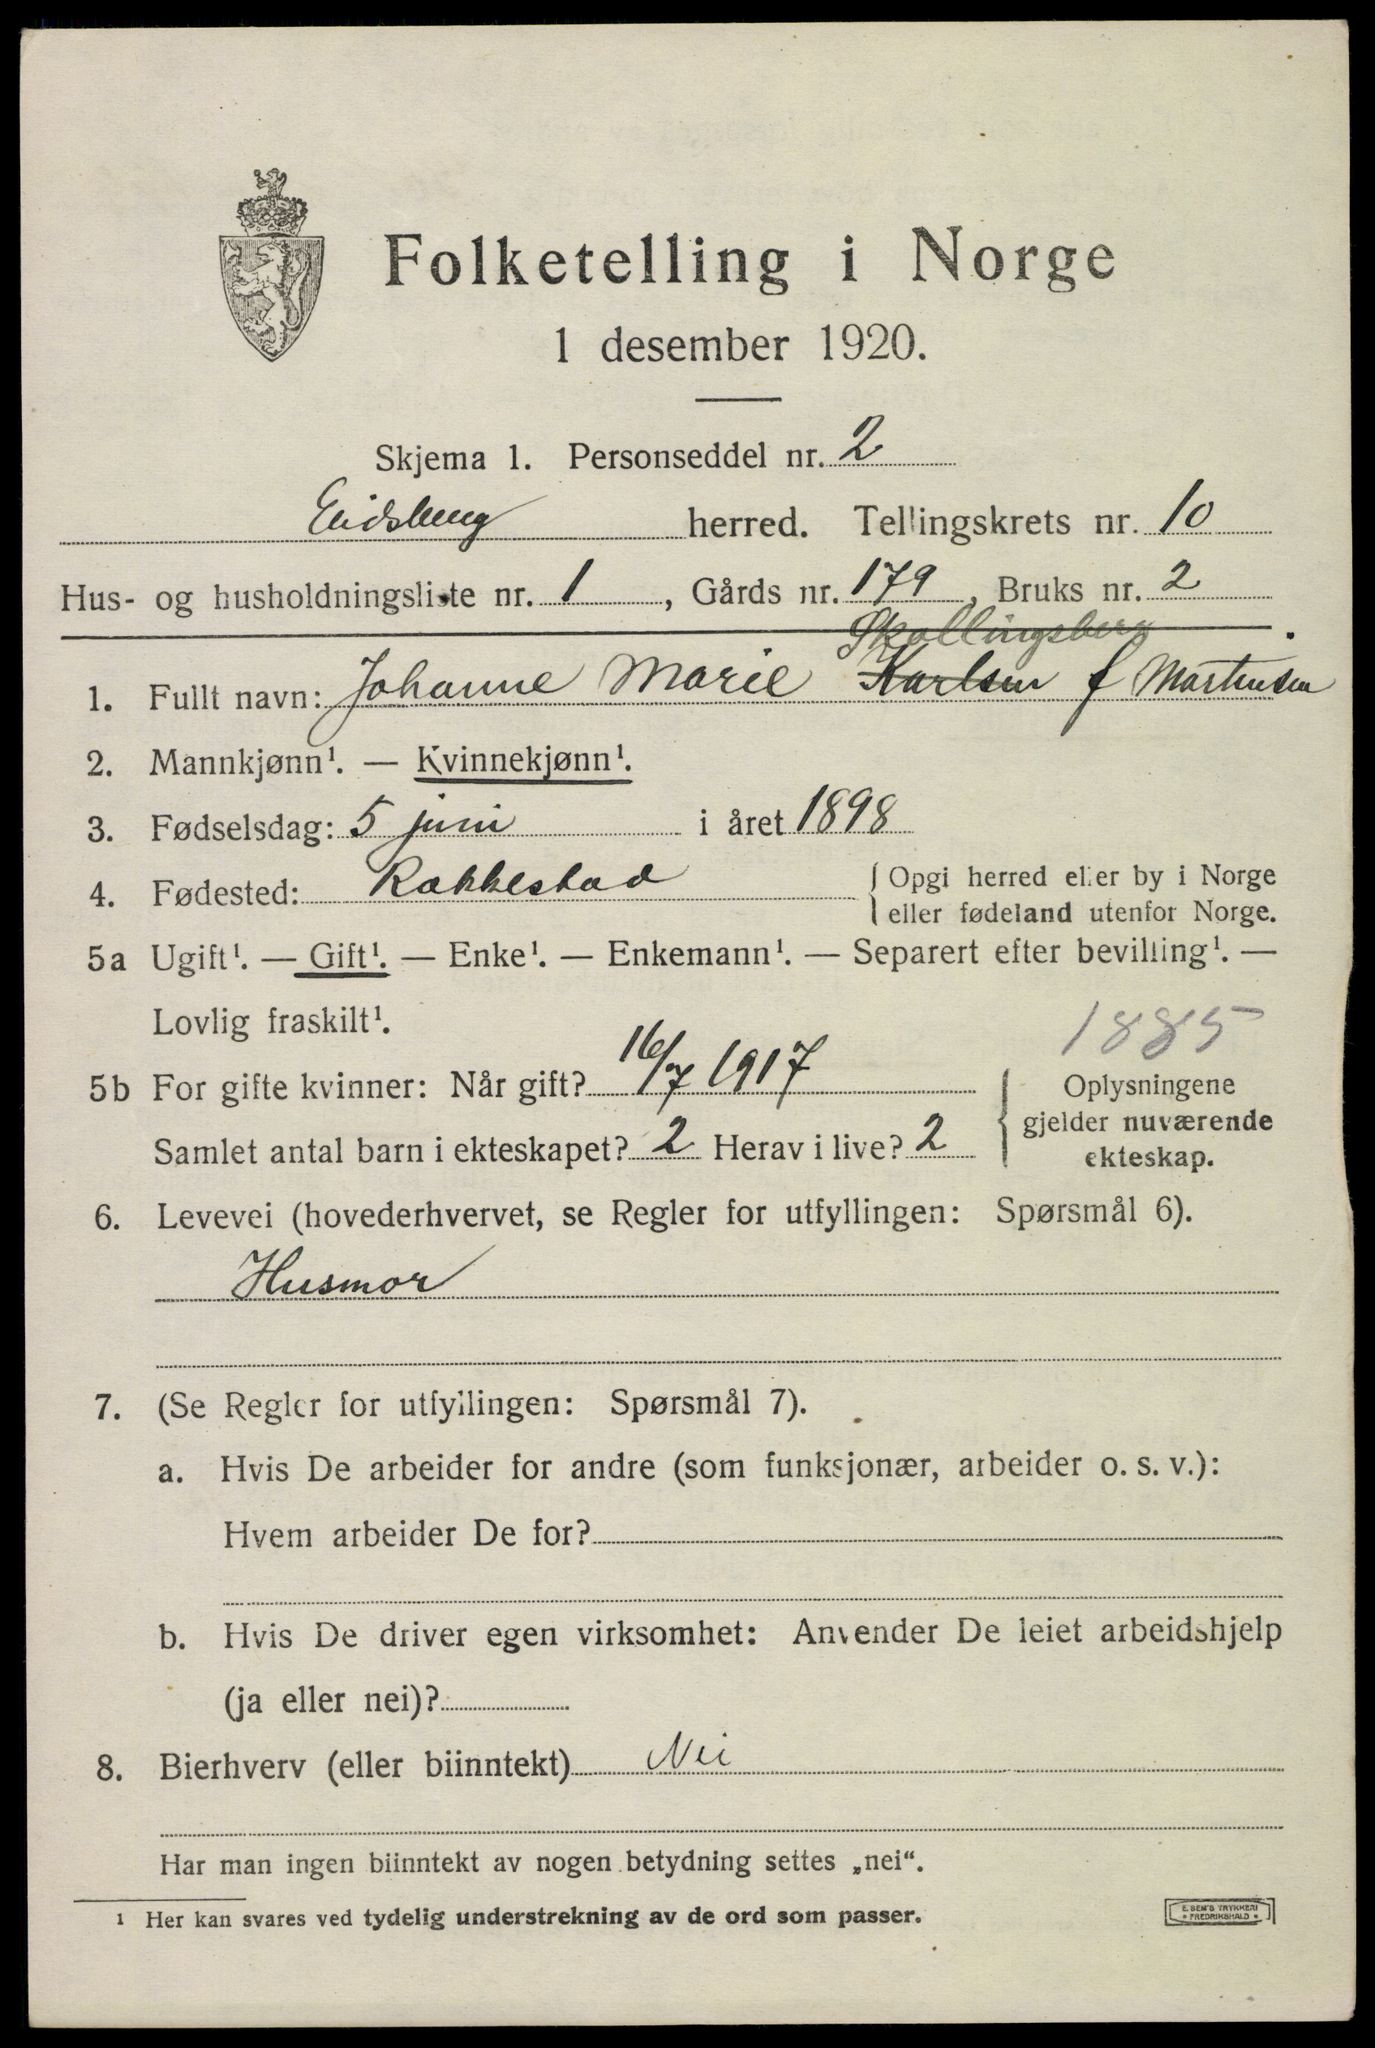 Folketelling i Norge
1 desember 1920.
Skjema 1. Personseddel nr. 2
Eidsberg herred. Tellingskrets nr. 10
Hus- og husholdningsliste nr. 1, Gårds nr. 179, Bruks nr. 2
Skollingsberg
1. Fullt navn: Johanne Marie Karlsen f Martensen
2. Mannkjønn¹. — Kvinnekjønn¹.
3. Fødselsdag: 5 juni i året 1898
4. Fødested: Rakkestad { Opgi herred eller by i Norge
eller fødeland utenfor Norge.
5a Ugift¹. — Gift¹. — Enke¹. — Enkemann¹. — Separert efter bevilling¹. —
Lovlig fraskilt¹.
1885
5b For gifte kvinner: Når gift? 16/7 1917
Samlet antal barn i ekteskapet? 2 Herav i live? 2
{ Oplysningene
gjelder nuværende
ekteskap.
6. Levevei (hovederhvervet, se Regler for utfyllingen: Spørsmål 6).
Husmor
7. (Se Regler for utfyllingen: Spørsmål 7).
a. Hvis De arbeider for andre (som funksjonær, arbeider o. s. v.):
Hvem arbeider De for?
b. Hvis De driver egen virksomhet: Anvender De leiet arbeidshjelp
(ja eller nei)?
8. Bierhverv (eller biinntekt) Nei
Har man ingen biinntekt av nogen betydning settes „nei“.
¹ Her kan svares ved tydelig understrekning av de ord som passer.
E. SEM'S TRYKKERI
• FREDRIKSHALD •